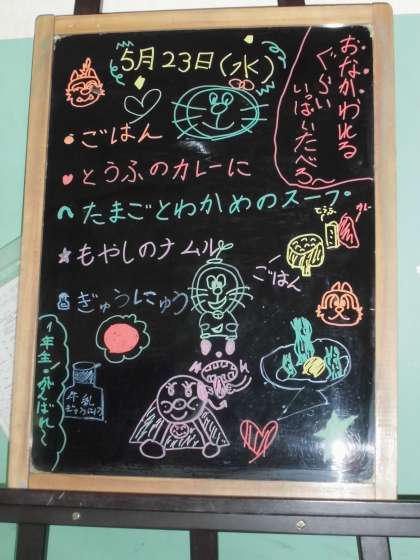 5月23日(水)
おなかわれる
ぐらい
いっぱいたべろ〜
ごはん
とうふのカレーに
たまごとわかめのスープ
もやしのナムル
ぎゅうにゅう
とうふ
カレー
ごはん
1年生・がんばれ〜
牛乳
ぎゅうにゅう